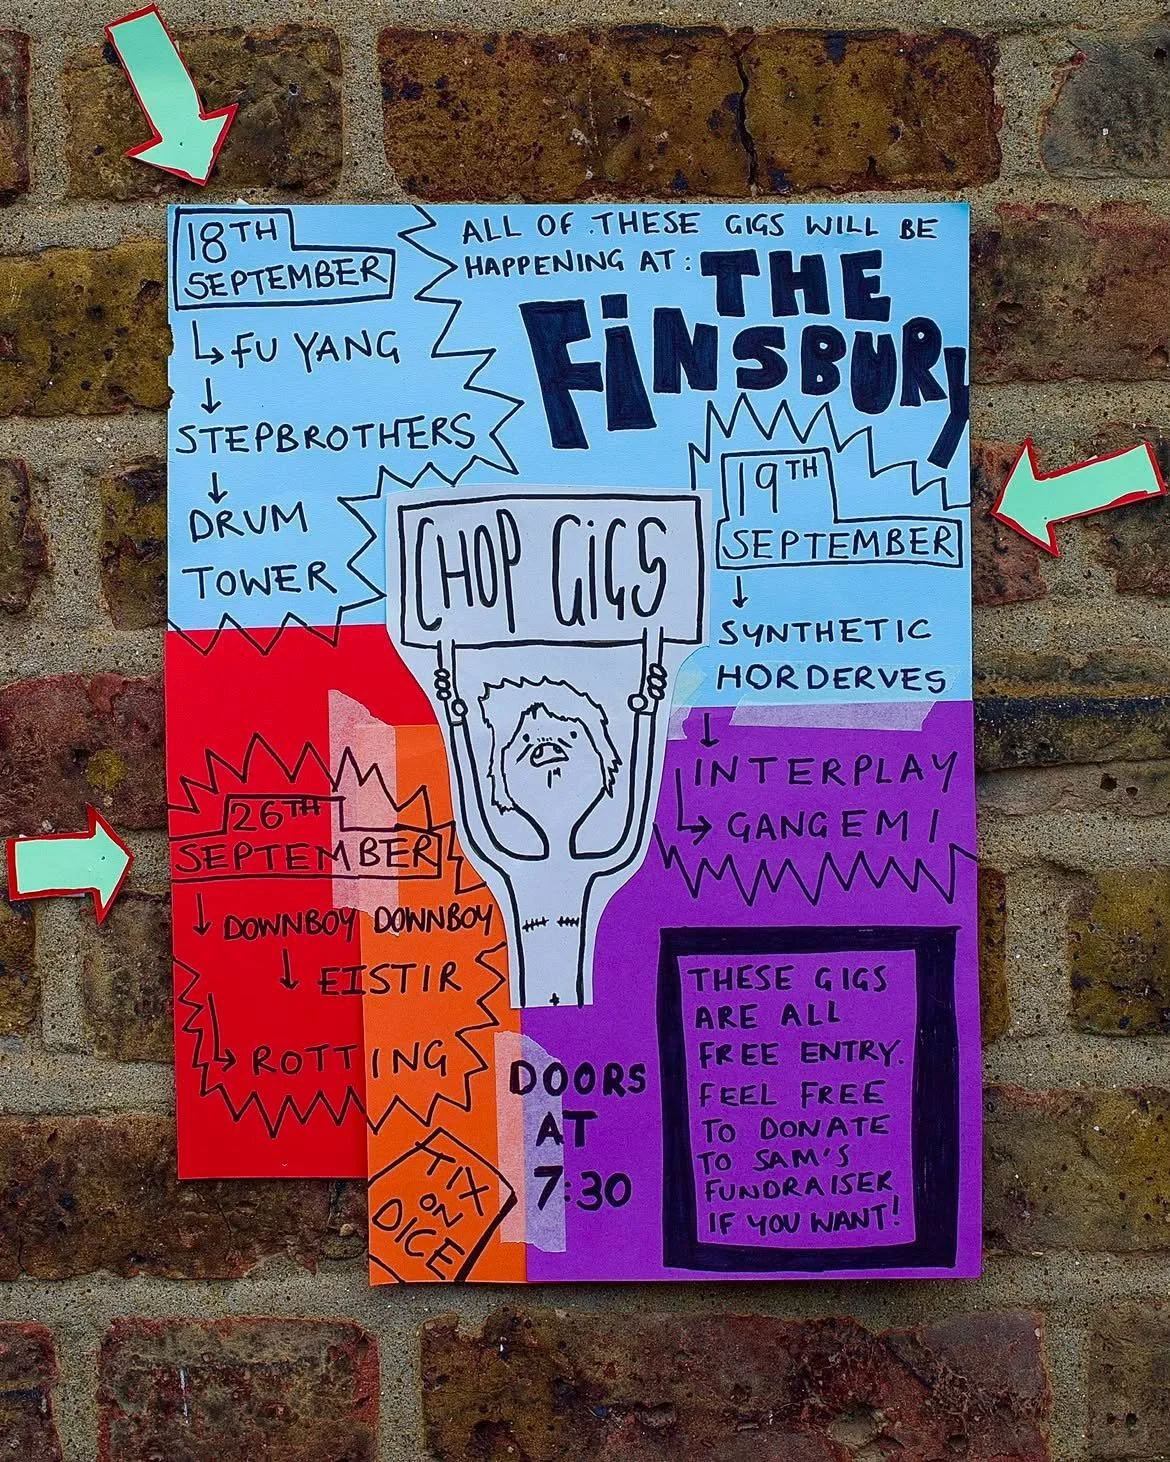 18TH
SEPTEMBER
FU YANG
STEPBROTHERS
DRUM
TOWER
ALL OF THESE GIGS WILL BE
HAPPENING AT:
THE
FiNSBURY
19TH
SEPTEMBER
SYNTHETIC
HORDERVES
INTERPLAY
GANGEMI
CHOP GiGS
26TH
SEPTEMBER
DOWNBOY DOWNBOY
EISTIR
ROTTING
TIX
ON
DICE
DOORS
AT
7:30
THESE GIGS
ARE ALL
FREE ENTRY.
FEEL FREE
TO DONATE
TO SAM'S
FUNDRAISER
IF YOU WANT!